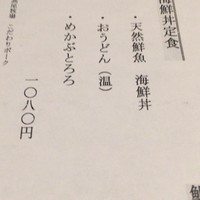 海鮮丼定食
・天然鮮魚 海鮮丼
・おうどん（温）
・めかぶとろろ
一〇八〇円
こだわりポーク